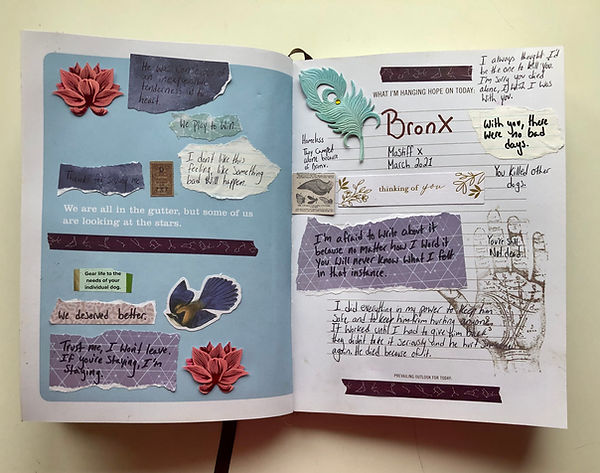 He was conscious of
an inexpressible
tenderness at
heart
We play to win.
I don't like this
feeling, like something
bad will happen.
Thanks for saving me.
We are all in the gutter, but some of us
are looking at the stars.
Gear life to the
needs of your
individual dog.
We deserved better.
Trust me, I won't leave.
If you're staying, I'm
staying.
I always thought I'd
be the one to kill you.
I'm sorry you died
alone, I wish I was
with you.
WHAT I'M HANGING HOPE ON TODAY:
BronX
Mastiff X
March 2021
With you, there
were no bad
days.
Homeless
They camped
alone because
of Bronx.
You killed other
dogs.
thinking of you
I'm afraid to write about it
because no matter how I word it
you will never know what I felt
in that instance.
You're Still
Not dead.
I did everything in my power to keep him
safe, and to keep him from hurting anyone.
It worked until I had to give him back
they didn't take it seriously and he hurt
again. He died because of it.
PREVAILING OUTLOOK FOR TODAY: